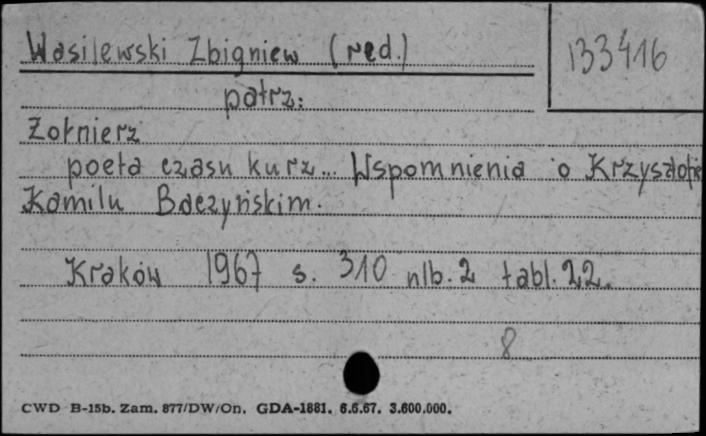 Wasilewski Zbigniew (red.)
133416
patrz:
Żołnierz
poeta czasu kurz... Wspomnienia o Krzysztofie
Kamilu Baczyńskim.
Kraków 1967 s. 310 nlb. 2 tabl. 22.
8
CWD B-15b. Zam. 877/DW/On. GDA-1881. 6.6.67. 3.600.000.